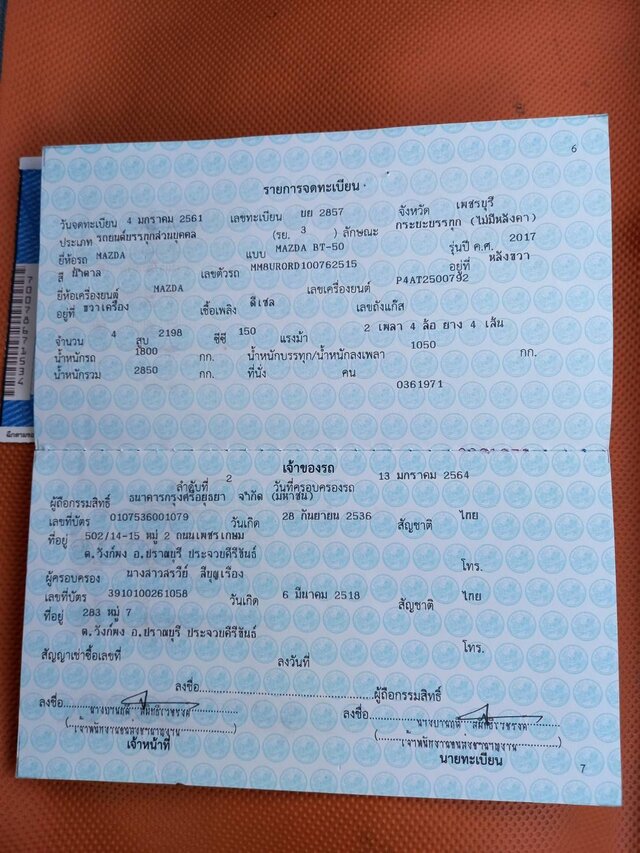 6
รายการจดทะเบียน
วันจดทะเบียน 4 มกราคม 2561 เลขทะเบียน บย 2857 จังหวัด เพชรบุรี
ประเภท รถยนต์บรรทุกส่วนบุคคล (รย. 3) ลักษณะ กระบะบรรทุก (ไม่มีหลังคา)
ยี่ห้อรถ MAZDA แบบ MAZDA BT-50 รุ่นปี ค.ศ. 2017
สี น้ำตาล เลขตัวรถ MM8URORD100762515 อยู่ที่ หลังขวา
ยี่ห้อเครื่องยนต์ MAZDA เลขเครื่องยนต์ P4AT2500792
อยู่ที่ ขวาเครื่อง เชื้อเพลิง ดีเซล เลขถังแก๊ส
จำนวน 4 สูบ 2198 ซีซี 150 แรงม้า 2 เพลา 4 ล้อ ยาง 4 เส้น
น้ำหนักรถ 1800 กก. น้ำหนักบรรทุก/น้ำหนักลงเพลา 1050 กก.
น้ำหนักรวม 2850 กก. ที่นั่ง คน
0361971
เจ้าของรถ
ลำดับที่ 2 วันที่ครอบครองรถ 13 มกราคม 2564
ผู้ถือกรรมสิทธิ์ ธนาคารกรุงศรีอยุธยา จำกัด (มหาชน)
เลขที่บัตร 0107536001079 วันเกิด 28 กันยายน 2536 สัญชาติ ไทย
ที่อยู่ 502/14-15 หมู่ 2 ถนนเพชรเกษม
ต.วังก์พง อ.ปราณบุรี ประจวบคีรีขันธ์ โทร.
ผู้ครอบครอง นางสาวสรวีย์
เลขที่บัตร 3910100261058 วันเกิด 6 มีนาคม 2518 สัญชาติ ไทย
ที่อยู่ 283 หมู่ 7
ต.วังก์พง อ.ปราณบุรี ประจวบคีรีขันธ์ โทร.
สัญญาเช่าซื้อเลขที่ ลงวันที่
ลงชื่อ ผู้ถือกรรมสิทธิ์
ลงชื่อ ลงชื่อ
(เจ้าพนักงานขนส่งชำนาญงาน) (เจ้าพนักงานขนส่งชำนาญงาน)
เจ้าหน้าที่ นายทะเบียน
7
70076671534